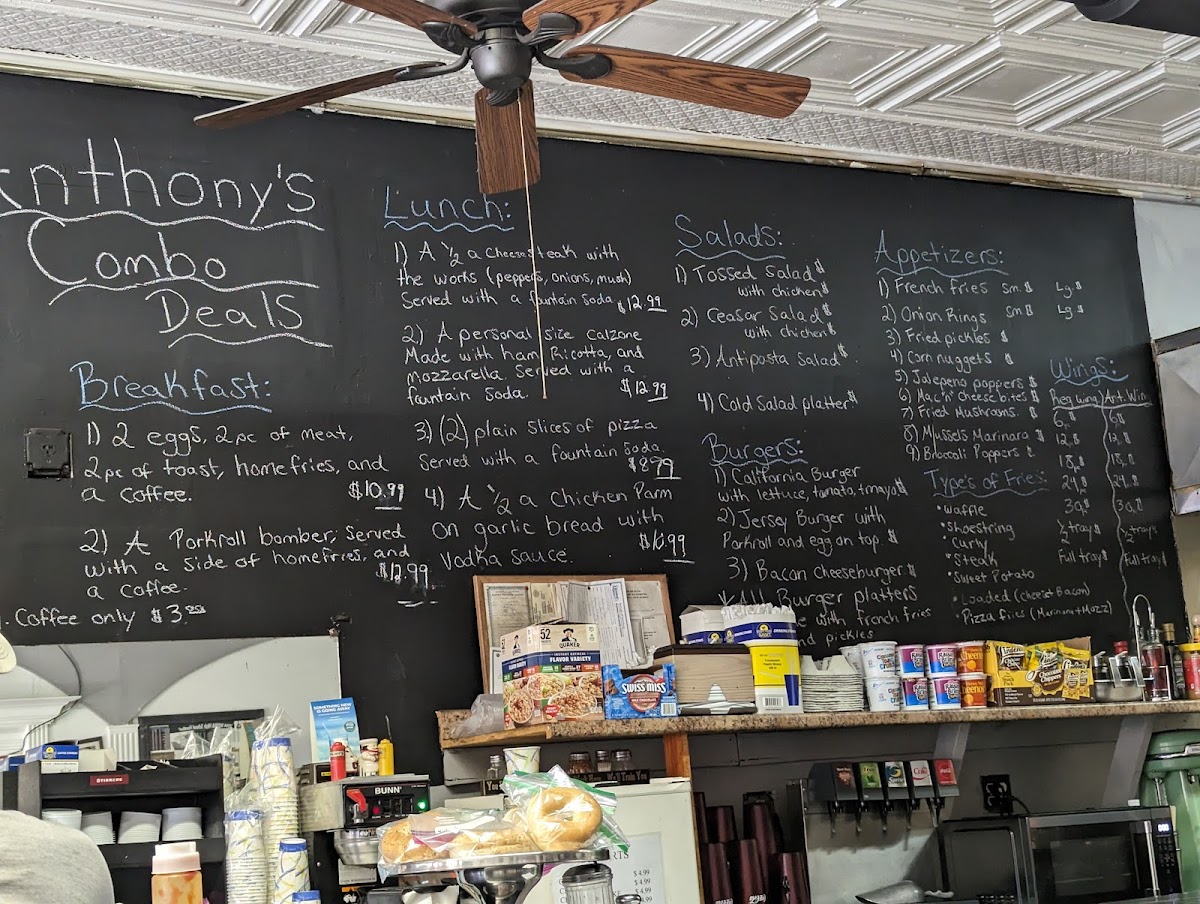 Anthony's
Combo
Deals
Breakfast:
1) 2 eggs, 2pc of meat,
2pc of toast, homefries, and
a coffee. $10.99
2) A Porkroll bomber, served
with a side of homefries, and
a coffee. $12.99
Coffee only $3.
Lunch:
1) A 1/2 a cheesesteak with
the works (peppers, onions, mush)
Served with a fountain soda $12.99
2) A personal size calzone
Made with ham, Ricotta, and
mozzarella. Served with a
fountain soda. $12.99
3) (2) plain slices of pizza
Served with a fountain soda
$8.99
4) A 1/2 a Chicken Parm
on garlic bread with
Vodka sauce. $10.99
Salads:
1) Tossed Salad $
with chicken $
2) Ceasar Salad $
with chicken $
3) Antipasta Salad $
4) Cold Salad platter $
Burgers:
1) California Burger
with lettuce, tomato, + mayo $
2) Jersey Burger with
Porkroll and egg on top $
3) Bacon Cheeseburger $
All Burger platters
with french fries
and pickles
Appetizers:
1) French fries Sm. $ Lg. $
2) Onion Rings Sm $ Lg $
3) Fried pickles $
4) Corn nuggets $
5) Jalepeno poppers $
6) Mac'n'cheese bites $
7) Fried Mushrooms. $
8) Mussels Marinara $
9) Broccoli Poppers $
Types of Fries:
•waffle
•shoestring
•curly
•Steak
•Sweet Potato
•Loaded (cheese + Bacon)
•Pizza fries (Marinara + Mozz)
Wings:
Reg wing) Ant. Wing
6, $ 6, $
12, $ 12, $
18, $ 18, $
24, $ 24, $
30, $ 30, $
1/2 tray $ 1/2 tray $
Full tray $ Full tray $
52
QUAKER
INSTANT OATMEAL
FLAVOR VARIETY
SWISS MISS
SOMETHING NEW
IS GOING AWAY
STIRRERS
BUNN
Coke
$4.99
$4.99
$4.99